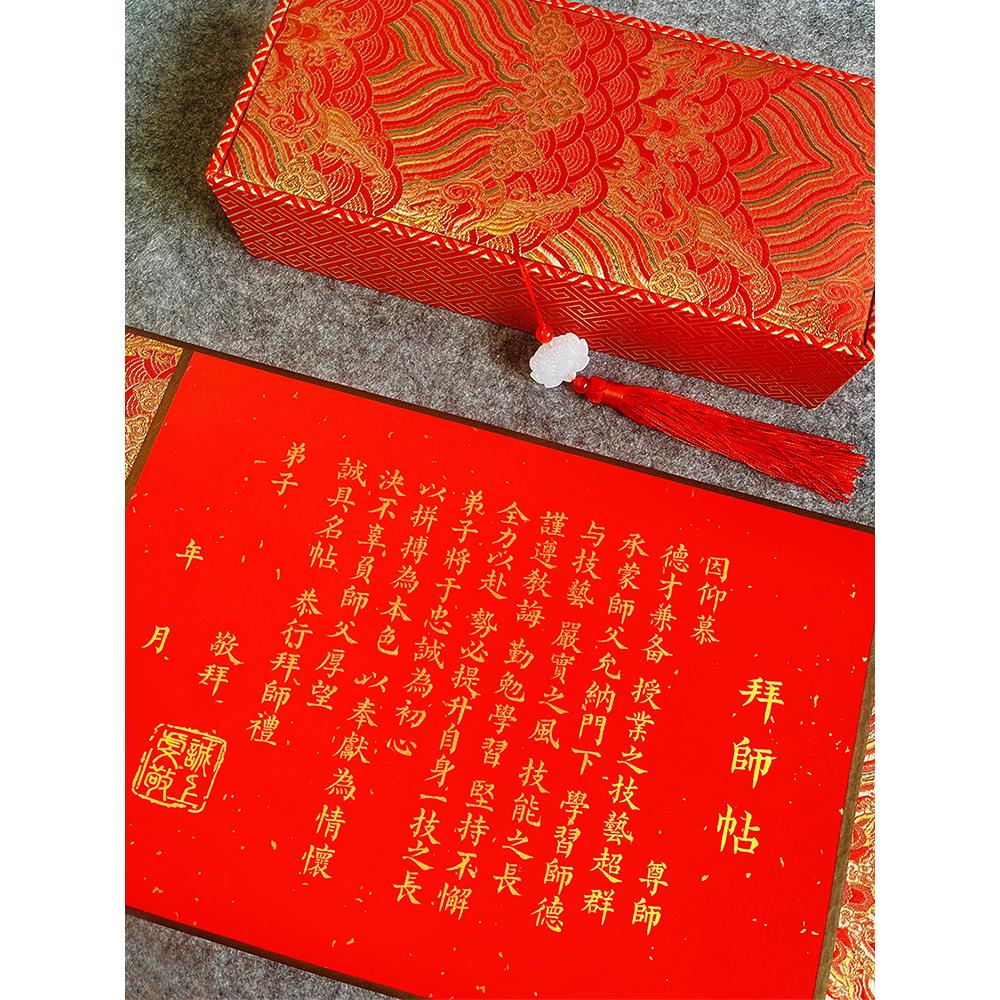 拜師帖
因仰慕 尊師
德才兼备 授業之技藝超群
承蒙師父允納門下 學習師德
与技藝 嚴實之風 技能之長
謹遵教誨 勤勉學習 堅持不懈
全力以赴 勢必提升自身一技之長
弟子將于忠誠為初心
以拼搏為本色 以奉獻為情懷
決不辜負師父厚望
誠具名帖 恭行拜師禮
弟子 敬拜
年 月
誠上
敬